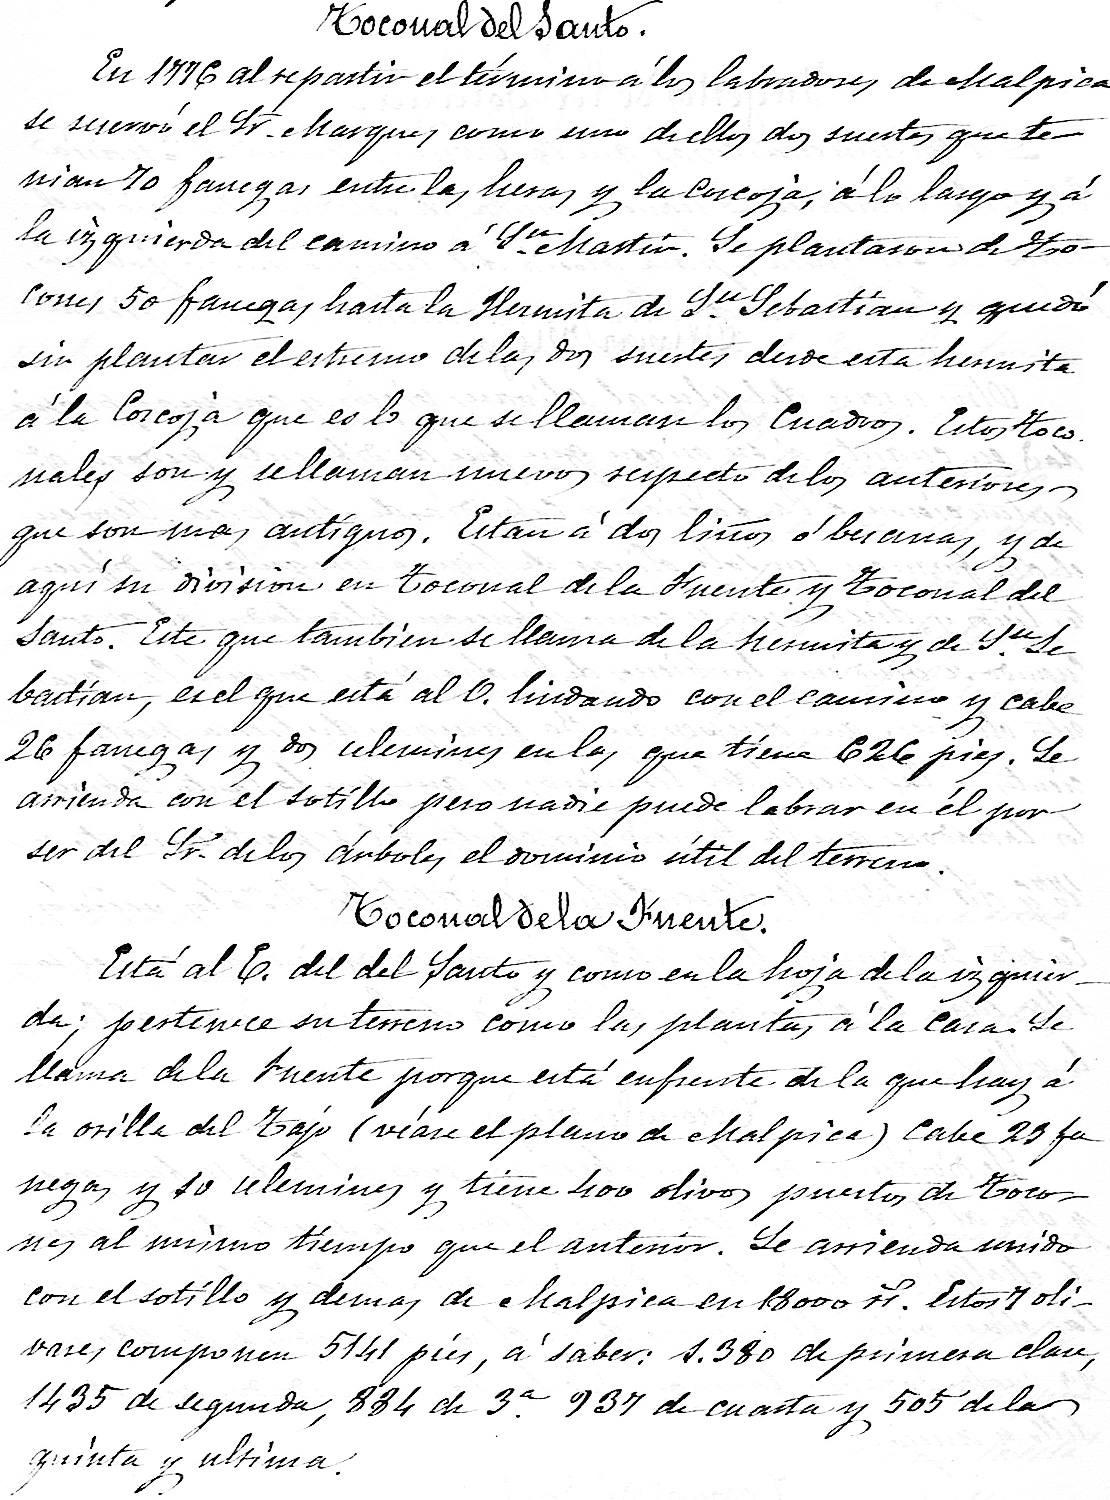 Toconal del Santo.
En 1776 al repartir el término á los labradores de Malpica
se reservó el Sr. Marques como uno de ellos dos suertes que te-
nian 70 fanegas entre las heras y la Coscoja, á lo largo y á
la izquierda del camino á Sn. Martin. Se plantaron de To-
cones 50 fanegas hasta la Hermita de Sn. Sebastian y quedó
sin plantar el estremo de las dos suertes desde esta hermita
á la Coscoja que es lo que se llaman los Cuadros. Estos Toco
nales son y se llaman nuevos respecto de los anteriores
que son mas antiguos. Estan á dos liños ó besanas, y de
aquí su division en Toconal de la Fuente y Toconal del
Santo. Este que tambien se llama de la hermita y de Sn. Se
bastian, es el que está al O. lindando con el camino y cabe
26 fanegas y dos celemines en las que tiene 626 pies. Se
arrienda con el sotillo pero nadie puede labrar en él por
ser del Sr. de los árboles el dominio útil del terreno.
Toconal de la Fuente.
Está al E. del del Santo y como en la hoja de la izquier-
da; pertenece su terreno como las plantas á la casa. Se
llama de la Fuente porque está enfrente de la que hay á
la orilla del Tajo (véase el plano de Malpica) Cabe 23 fa
negas y 10 celemines y tiene 400 olivos puestos de Toco-
nes al mismo tiempo que el anterior. Se arrienda unido
con el sotillo y demas de Malpica en 18000 rs. Estos 7 oli-
vares componen 5141 pies, á saber: 1.380 de primera clase,
1435 de segunda, 884 de 3a. 937 de cuarta y 505 de la
quinta y ultima.